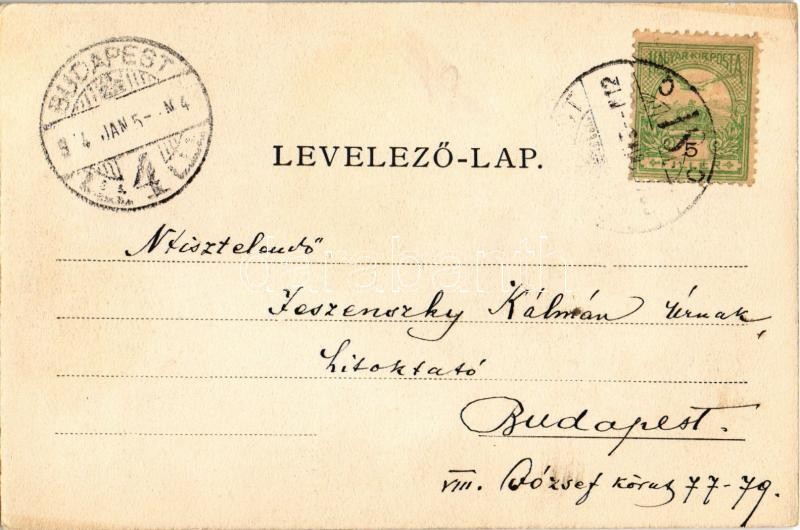 BUDAPEST
9 4 JAN 5 - N 4
4
MAGYAR KIR. POSTA
5
FILLÉR
LEVELEZŐ-LAP.
Ntisztelendő
darabanth
Jeszenszky Kálmán Úrnak,
hitoktató
Budapest.
VIII. József körut 77-79.